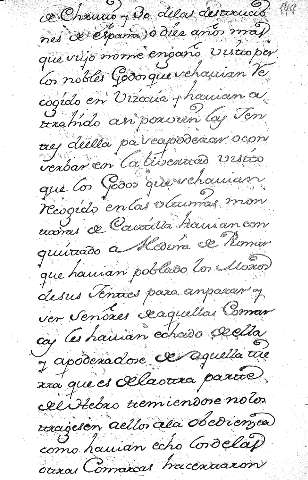 de Christo y 80 de las destruicio
nes de españa o diez años mas
que si yo no me engaño visto por
los nobles Godos que se havian re
cogido en Vizcaia y havian a
trahido asi por suen las Jen
tes della pa se apoderar o con
serbar en la livertad visto
que los Godos que se havian
recogido en las ultimas mon
tañas de Castilla havian con
quistado a Medina de Pomar
que havian poblado los Moros
de sus Jentes para anparar y
ser señores de aquellas Comar
cas les havian echado de ella
y apoderadose de aquella tie
rra que es de la otra parte
del Hebro temiendose no los
trugesen a ellos a la obediencia
como havian echo los de las
otras Comarcas hacertaron